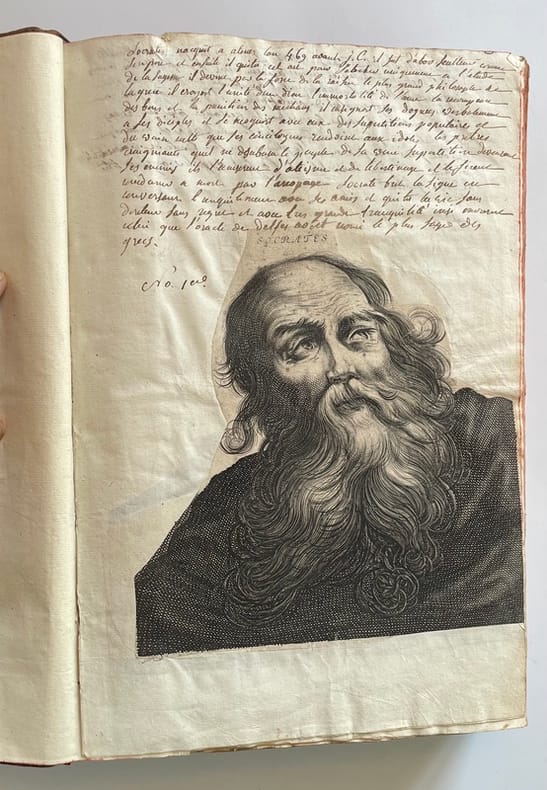 Socrates naquit a atenes l'an 469 avant J.C. il fut d'abord sculteur comme
son pere et ensuite il quita cet art pour s'atacher uniquement a l'étude
de la sagesse il devint par la force de sa raison le plus grand philosophe de
la grece il croyoit l'unité d'un dieu l'immortalité de l'ame la recompense
des bons et la punition des méchans il enseignoit ses dogmes verbalement
a ses disciples et se mocquoit avec eux des superstitions populaires et
du vain culte que ses concitoyens rendoient aux idoles les prêtres
craignants qu'il ne desabusa le peuple de sa vaine superstition devinrent
ses ennemis ils l'accuserent d'ateisme et de libertinage et le firent
condamner a mort par l'areopage Socrate but la sigue en
conversant tranquilement avec ses amis et quita la vie sans
douleur sans regret et avec la plus grande tranquilité ainsi mourut
celui que l'oracle de Delfes avoit nomé le plus sage des
grecs.
SOCRATES
No. 1er